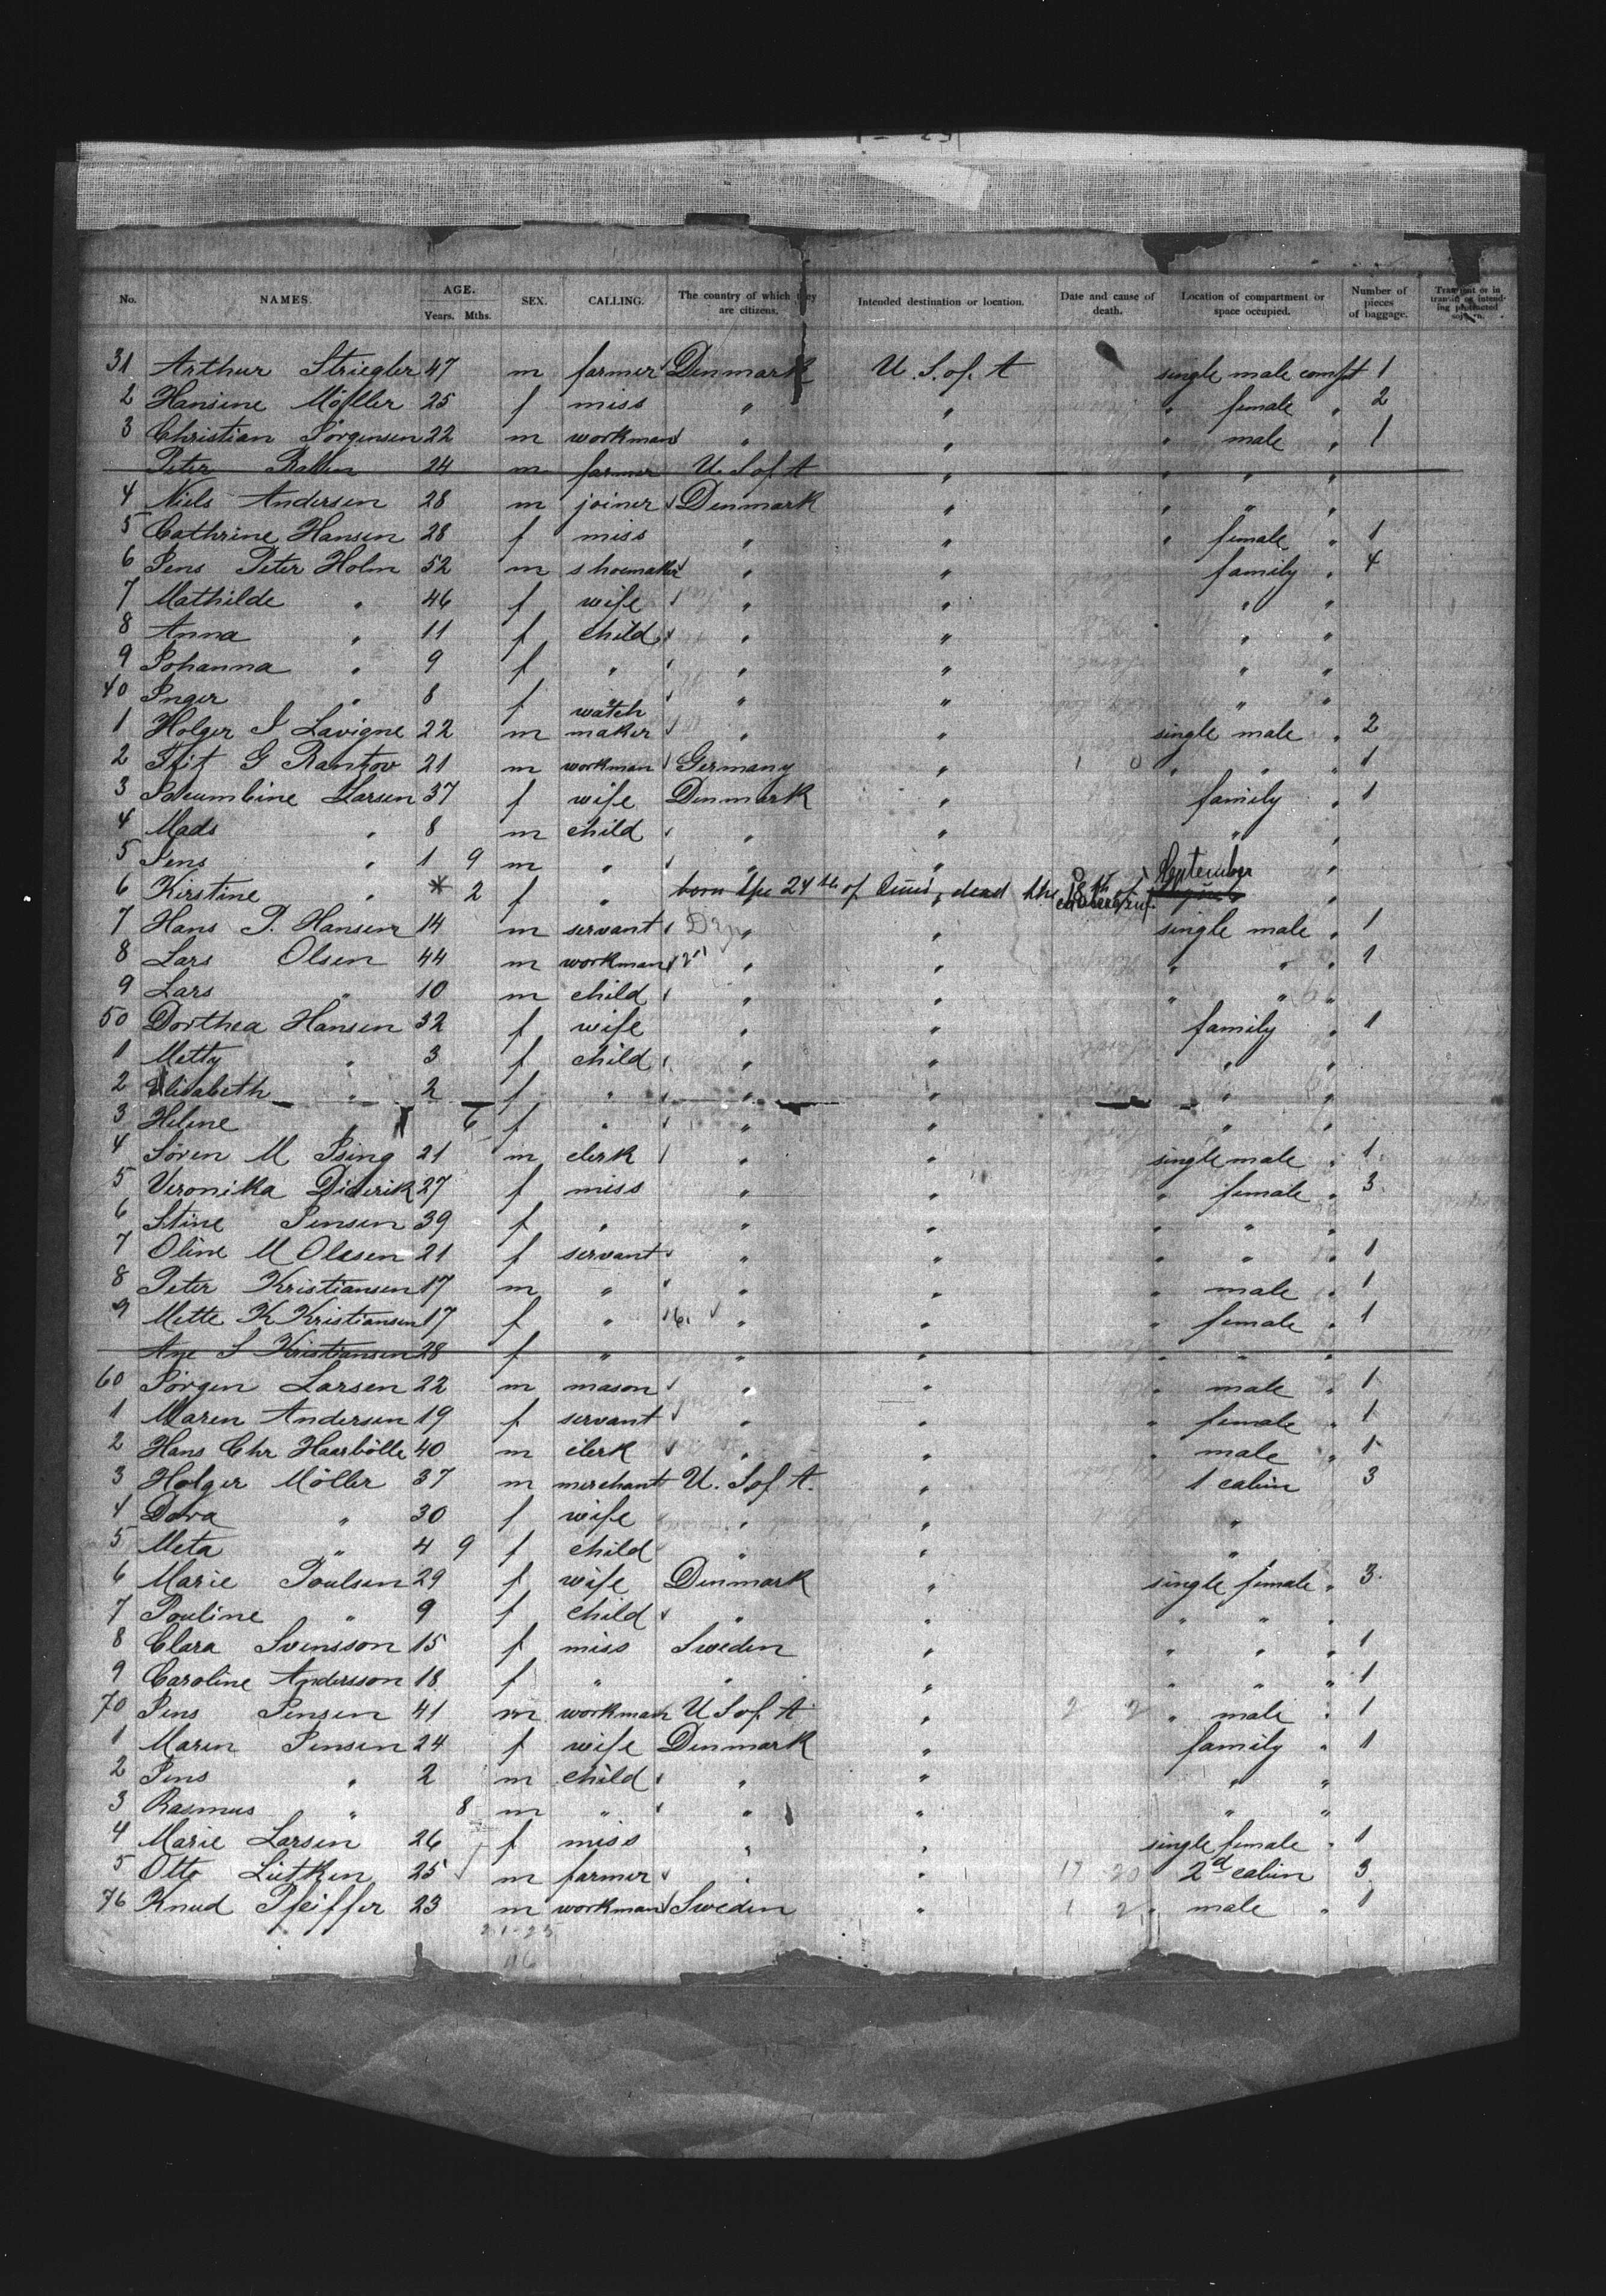 No. NAMES. AGE. Years. Mths. SEX. CALLING. The country of which they are citizens. Intended destination or location. Date and cause of death. Location of compartment or space occupied. Number of pieces of baggage. Transient or in transit or intending protracted sojourn.
31 Arthur Striegler 47 m farmer Denmark U. S. of. A single male compt 1
2 Hansine Möller 25 f miss " " " female " 2
3 Christian Jörgensen 22 m workman " " " male " 1
Peter 24 m farmer U. S of. A " " " "
4 Niels Andersen 28 m joiner Denmark " " " "
5 Cathrine Hansen 28 f miss " " " female " 1
6 Jens Peter Holm 52 m shoemaker " " family " 4
7 Mathilde " 46 f wife " " " "
8 Anna " 11 f child " " " "
9 Johanna " 9 f " " " " "
40 Inger " 8 f " " " "
1 Holger J Lavigne 22 m watch maker " " single male " 2
2 G Rantzov 21 m workman Germany " " " " 1
3 Larsen 37 f wife Denmark " family " 1
4 Mads " 8 m child " " " "
5 Jens " 1 9 m " " " "
6 Kirstine " * 2 f " born the 24th of Juni, dead the 18th of September "
7 Hans P. Hansen 14 m servant " " single male " 1
8 Lars Olsen 44 m workman " " " " " 1
9 Lars " 10 m child " " " " "
50 Dorthea Hansen 32 f wife " " family " 1
1 Metty " 3 f child " " " "
2 Elisabeth " 2 f " " " " "
3 Helene " 6 f " " " " "
4 Sören M Ising 21 m clerk " " single male " 1
5 Veronika Diderik 27 f miss " " " female " 3
6 Stine Jensen 39 f " " " " " "
7 Oline M Olesen 21 f servant " " " " " 1
8 Peter Kristiansen 17 m " " " " male " 1
9 Mette K Kristiansen 17 f " " " " female " 1
Ane S Kristiansen 28 f " " " " " "
60 Jörgen Larsen 22 m mason " " " male " 1
1 Maren Andersen 19 f servant " " " female " 1
2 Hans Chr Haarbölle 40 m clerk " " " male " 1
3 Holger Möller 37 m merchant U. S. of A. " 1 cabin 3
4 Dora " 30 f wife " " "
5 Meta " 4 9 f child " " "
6 Marie Poulsen 29 f wife Denmark " single female " 3
7 Pouline " 9 f child " " " " "
8 Clara Svensson 15 f miss Sweden " " " " 1
9 Caroline Andersson 18 f " " " " " " 1
70 Jens Jensen 41 m workman U S of. A " " male " 1
1 Maren Jensen 24 f wife Denmark " family " 1
2 Jens " 2 m child " " " "
3 Rasmus " 8 m " " " " "
4 Marie Larsen 26 f miss " " single female " 1
5 Otto Lütken 25 m farmer " " 17 20 2d cabin 3
76 Knud Pfeiffer 23 m workman Sweden " 1 2 " male " 1